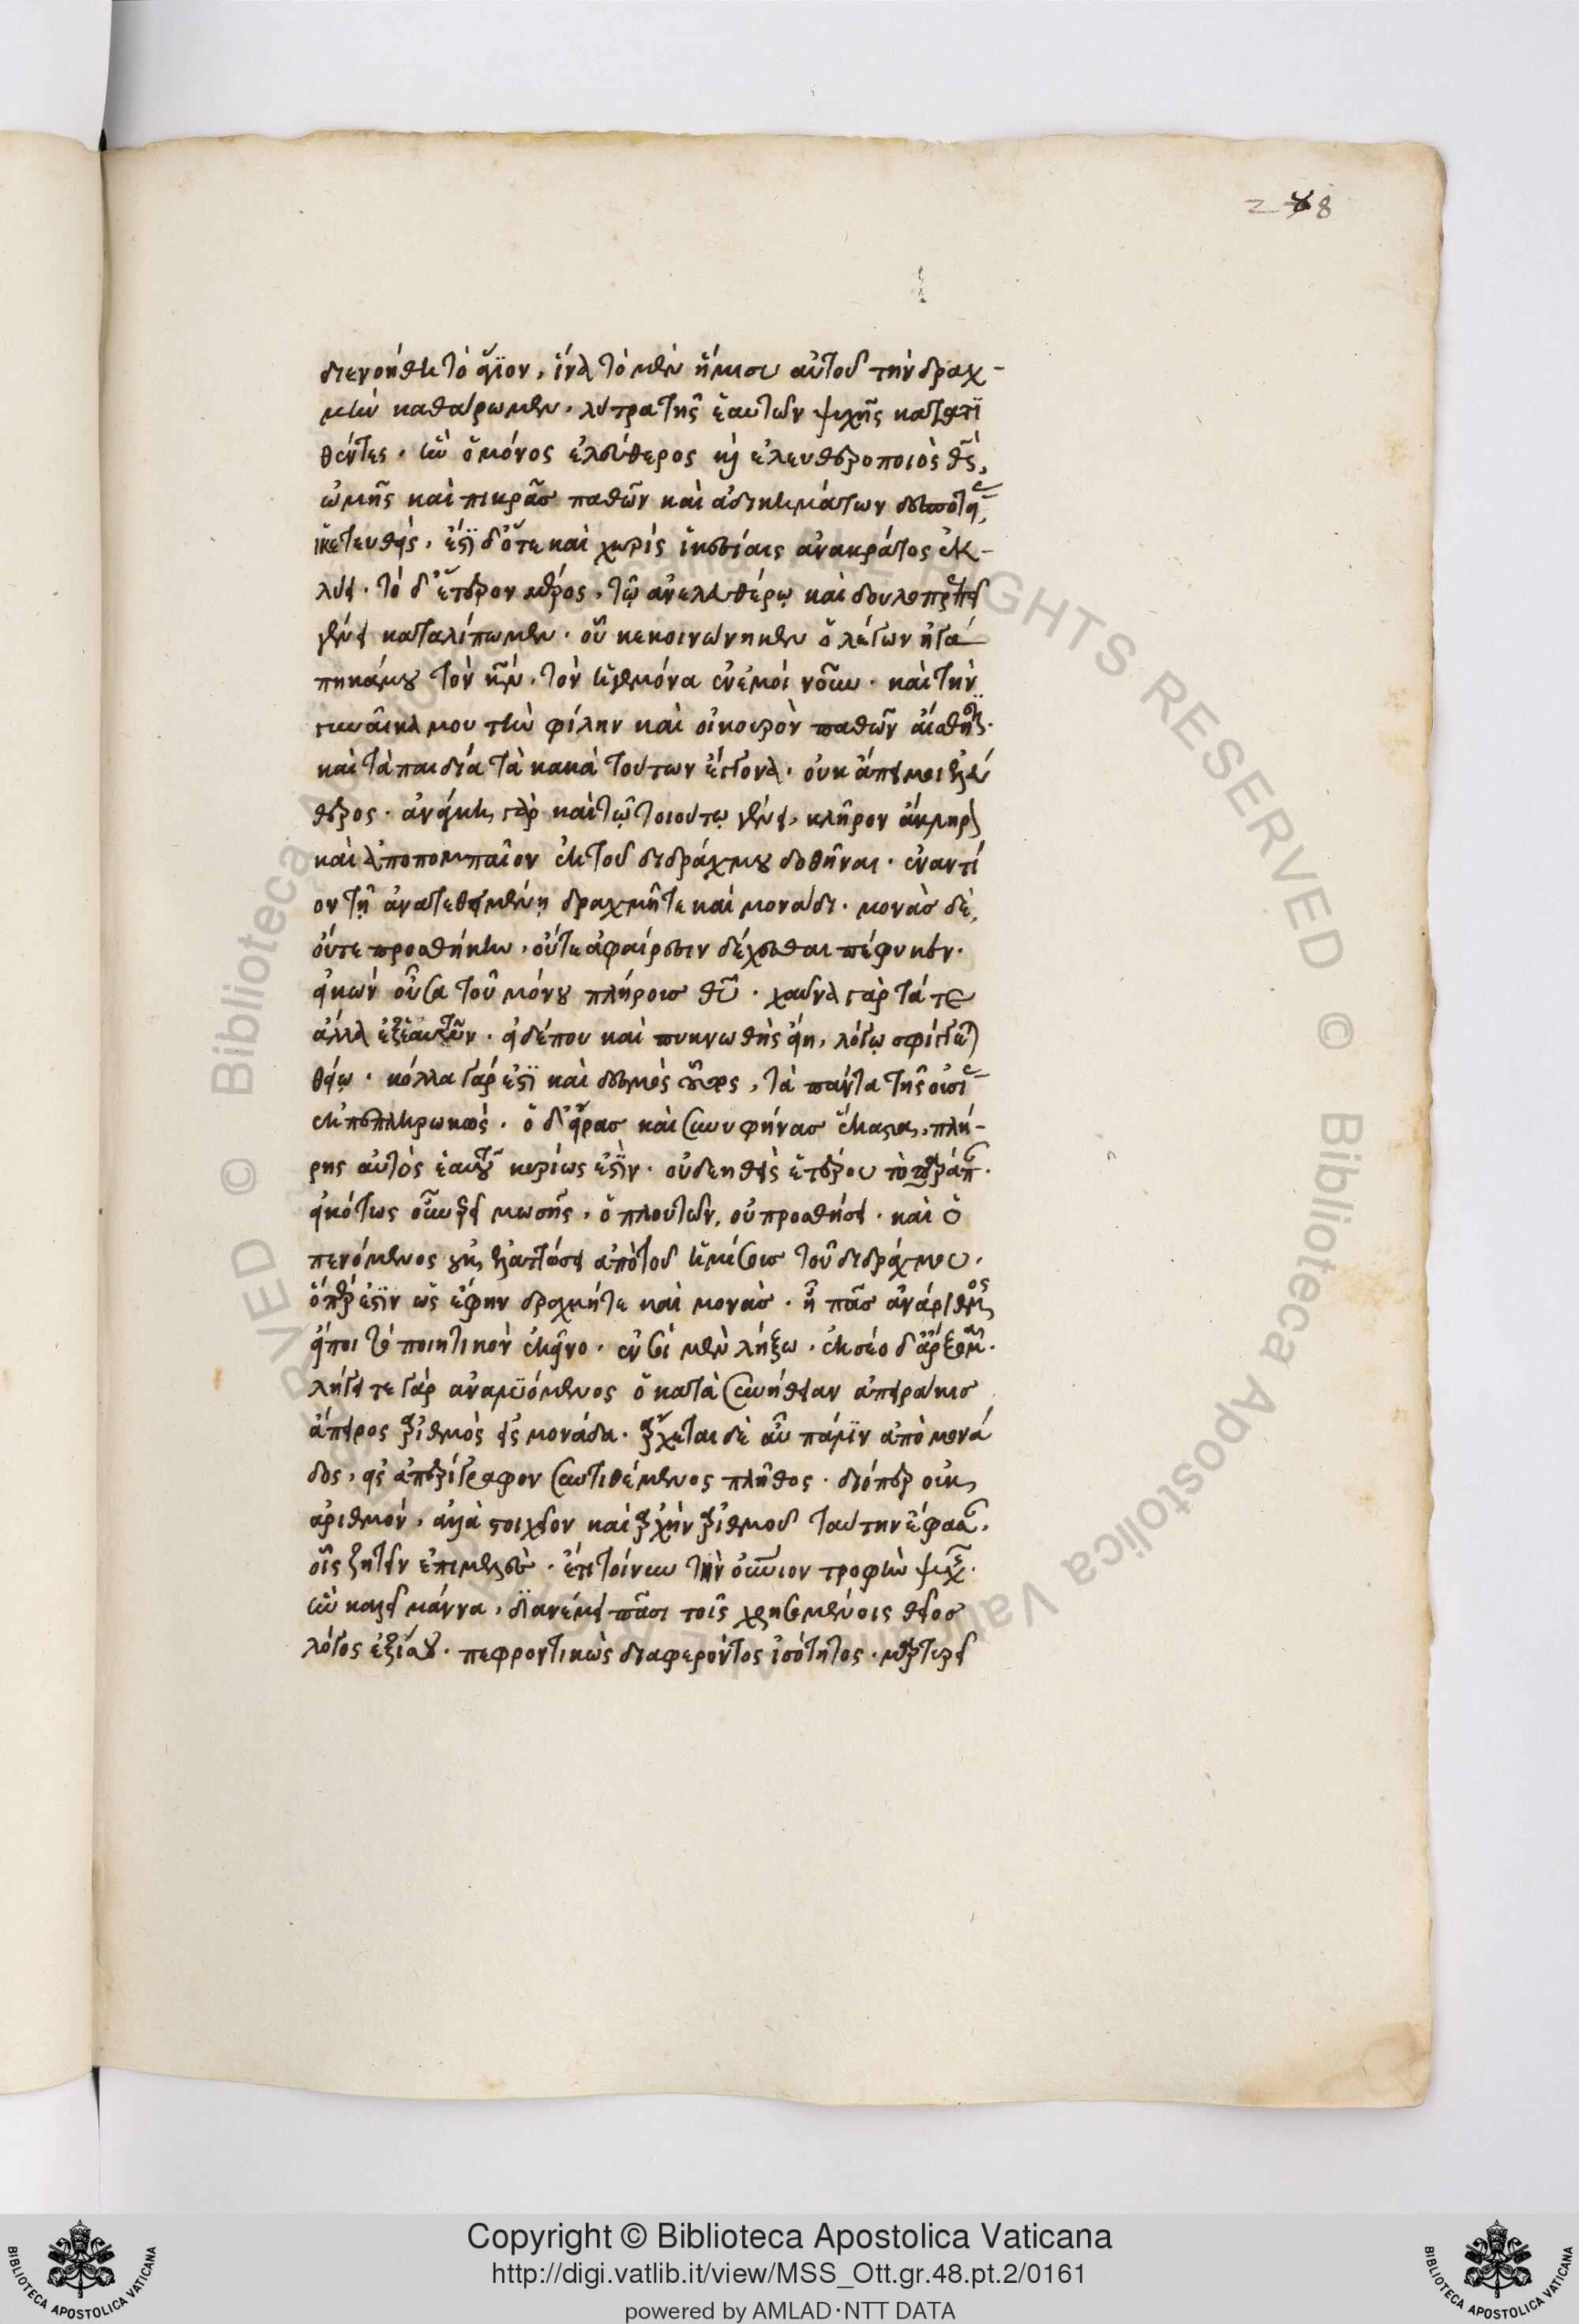 248
διενοήθη τὸ ἅγιον, ἵνα τὸ μὲν ἥμισυ αὐτοῦ τὴν δραχ-
μὴν καθαίρωμεν, λύτρα τῆς ἑαυτῶν ψυχῆς κατατι
θέντες. ἣν ὁ μόνος ἐλεύθερος καὶ ἐλευθεροποιὸς θεὸς,
ὠμῆς καὶ πικρᾶς παθῶν καὶ ἀδικημάτων δεσποτείας,
ἱκετευθεὶς, ἔστι δ' ὅτε καὶ χωρὶς ἱκεσίας ἀνακράτος ἐκ-
λύει. τὸ δ' ἕτερον μέρος, τῷ ἀνελευθέρῳ καὶ δουλοπρεπεῖ
γένει καταλίπωμεν. οὗ κεκοινώνηκεν ὁ λέγων ἠγά
πηκά μου τὸν κύριον, τὸν ἡγεμόνα ἐν ἐμοὶ νοῦν. καὶ τὴν
γυναῖκα μου τὴν φίλην καὶ οἰκουρὸν παθῶν αἴσθησιν.
καὶ τὰ παιδία τὰ κακὰ τούτων ἔκγονα. οὐκ ἄπειμι ἐλεύ
θερος. ἀνάγκη γὰρ καὶ τῷ τοιούτῳ γένει, κλῆρον ἄκληρον
καὶ ἀποπομπαῖον ἐκ τοῦ διδράχμου δοθῆναι. ἐναντί
ον τῇ ἀνατεθειμένῃ δραχμῇ τε καὶ μονάδι. μονὰς δὲ,
οὔτε προσθήκην, οὔτε ἀφαίρεσιν δέχεσθαι πέφυκεν.
εἰκὼν οὖσα τοῦ μόνου πλήρους θεοῦ. χαῦνα γὰρ τά τε
ἄλλα ἐξ ἑαυτῶν. εἰ δέ που καὶ πυκνωθὲν εἴη, λόγῳ σφίγγεται
θείῳ. κόλλα γάρ ἐστι καὶ δεσμὸς οὗτος, τὰ πάντα τῆς οὐσίας
ἐκπεπληρωκώς. ὁ δ' εἴρας καὶ συνυφήνας ἕκαστα, πλή-
ρης αὐτὸς ἑαυτοῦ κυρίως ἐστὶν. οὐ δεηθεὶς ἑτέρου τὸ παράπαν.
εἰκότως οὖν ἐρεῖ μωσῆς, ὁ πλουτῶν, οὐ προσθήσει. καὶ ὁ
πενόμενος οὐκ ἐλαττώσει ἀπὸ τοῦ ἡμίσους τοῦ διδράχμου.
ὅπερ ἐστὶν ὡς ἔφην δραχμή τε καὶ μονὰς. ᾗ πᾶς ἀνάριθμος
εἴποι τὸ ποιητικὸν ἐκεῖνο. ἐν σοὶ μὲν λήξω. ἐκ σέο δ' ἄρξομαι.
λήγει τε γὰρ ἀναλυόμενος ὁ κατὰ συνήθειαν ἀπειράκις
ἄπειρος ἀριθμὸς εἰς μονάδα. ἄρχεταί δὲ αὖ πάλιν ἀπὸ μονά
δος, εἰς ἀπερίγραφον συντιθέμενος πλῆθος. διόπερ οὐκ
ἀριθμὸν, ἀλλὰ στοιχεῖον καὶ ἀρχὴν ἀριθμοῦ ταύτην ἔφασαν,
οἷς ζητεῖν ἐπιμελὲς. ἔτι τοίνυν τὴν οὐράνιον τροφὴν ψυχῆς.
ἣν καλεῖ μάννα, διανέμει πᾶσι τοῖς χρησομένοις θεῖος
λόγος ἐξ ἴσου. πεφροντικὼς διαφερόντως ἰσότητος. μαρτυρεῖ
Copyright © Biblioteca Apostolica Vaticana
http://digi.vatlib.it/view/MSS_Ott.gr.48.pt.2/0161
powered by AMLAD·NTT DATA